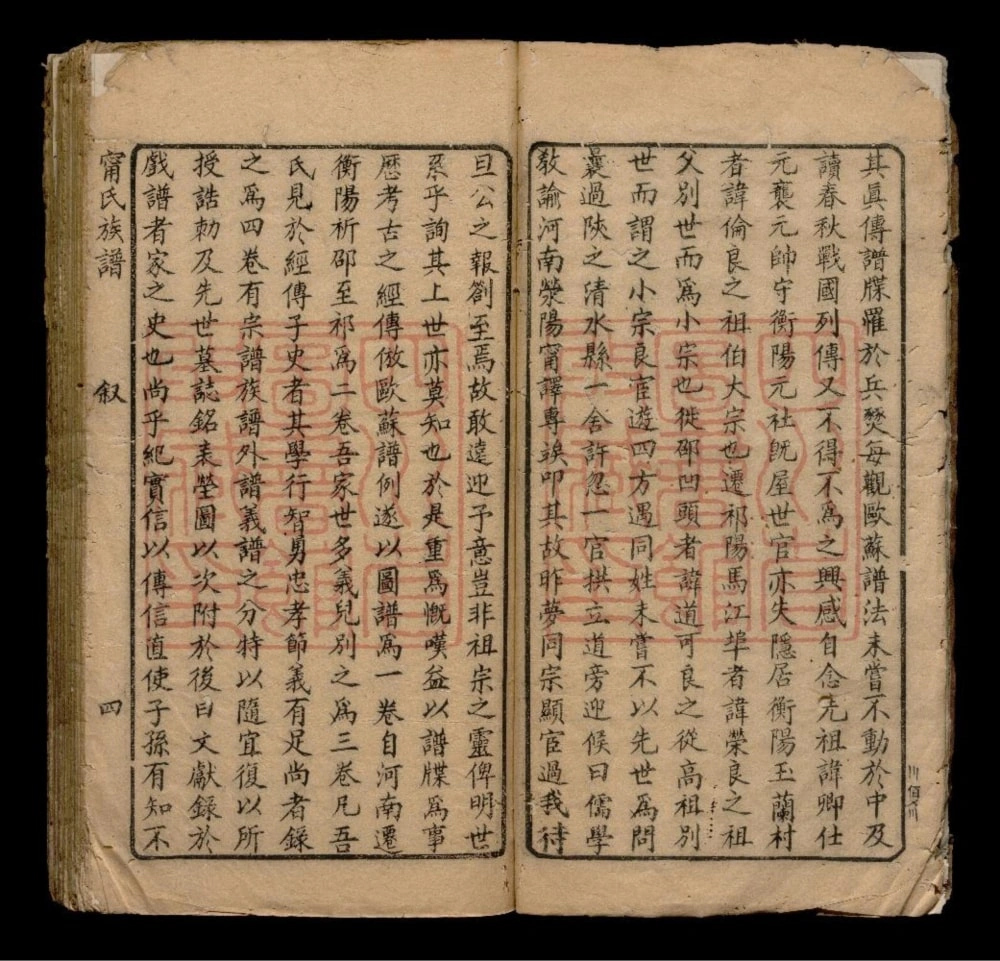 其眞傳譜牒罹於兵燹每觀歐蘇譜法未嘗不動於中及
讀春秋戰國列傳又不得不爲之興感自念先祖諱卿仕
元襲元帥守衡陽元社既屋世官亦失隱居衡陽玉蘭村
者諱倫良之祖伯大宗也遷祁陽馬江埠者諱榮良之祖
父別世而爲小宗也徙邵凹頭者諱道可良之從高祖別
世而謂之小宗良宦遊四方遇同姓未嘗不以先世爲問
曩過陝之清水縣一舍許忽一官拱立道旁迎候曰儒學
教諭河南滎陽甯譯專竢叩其故昨夢同宗顯宦過我待
旦公之報劄至焉故敢遠迎予意豈非祖宗之靈俾明世
系乎詢其上世亦莫知也於是重爲慨嘆益以譜牒爲事
歷考古之經傳倣歐蘇譜例遂以圖譜爲一卷自河南遷
衡陽祈邵至祁爲二卷吾家世多義兒別之爲三卷凡吾
氏見於經傳子史者其學行智勇忠孝節義有足尚者錄
之爲四卷有宗譜族譜外譜義譜之分特以隨宜復以所
授誥勅及先世墓誌銘表塋圖以次附於後曰文獻錄於
戲譜者家之史也尚乎紀實信以傳信直使子孫有知不
甯氏族譜 叙 四